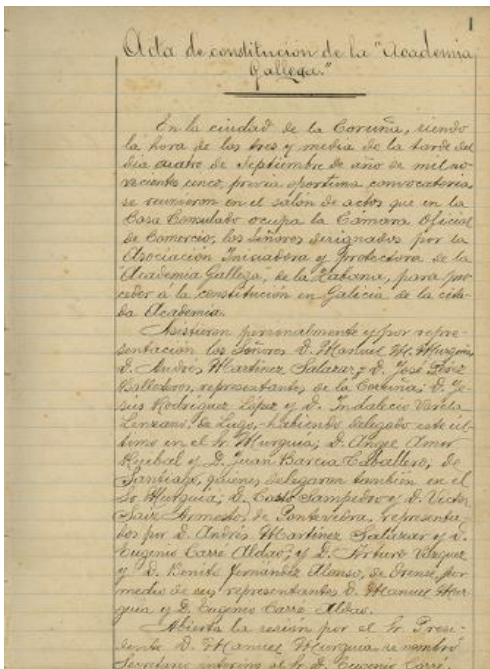 1
Acta de constitución de la "Academia
Gallega."
En la ciudad de la Coruña, siendo
la hora de las tres y media de la tarde del
día cuatro de Septiembre de año de mil no-
vecientos cinco, previa oportuna convocatoria
se reunieron en el salón de actos que en la
Casa Consulado ocupa la Cámara Oficial
de Comercio, los Señores designados por la
Asociación Iniciadora y protectora de la
"Academia Gallega", de la Habana, para pro-
ceder á la constitución en Galicia de la cita-
da Academia.
Asistieron personalmente y por repre-
sentación los Señores D. Manuel M. Murguía,
D. Andrés Martínez Salazar, y D. José Pérez
Ballesteros, representantes de la Coruña; D. Je-
sús Rodríguez López y D. Indalecio Varela
Lenzano, de Lugo, habiendo delegado este úl-
timo en el Sr Murguía; D. Angel Amor
Ruibal y D. Juan Barcia Caballero, de
Santiago, quienes delegaron también en el
Sr Murguía; D. Casto Sampedro y D. Victor
Said Armesto, de Pontevedra, representa-
dos por D. Andrés Martínez Salazar y D.
Eugenio Carré Aldao; y D. Arturo Vázquez
y D. Benito Fernández Alonso, de Orense, por
medio de sus representantes D. Manuel Mur-
guía y D. Eugenio Carré Aldao.
Abierta la sesión por el Sr. Presi-
dente D. Manuel Murguía se nombró
Secretario interino al Sr. D. Eugenio Carré